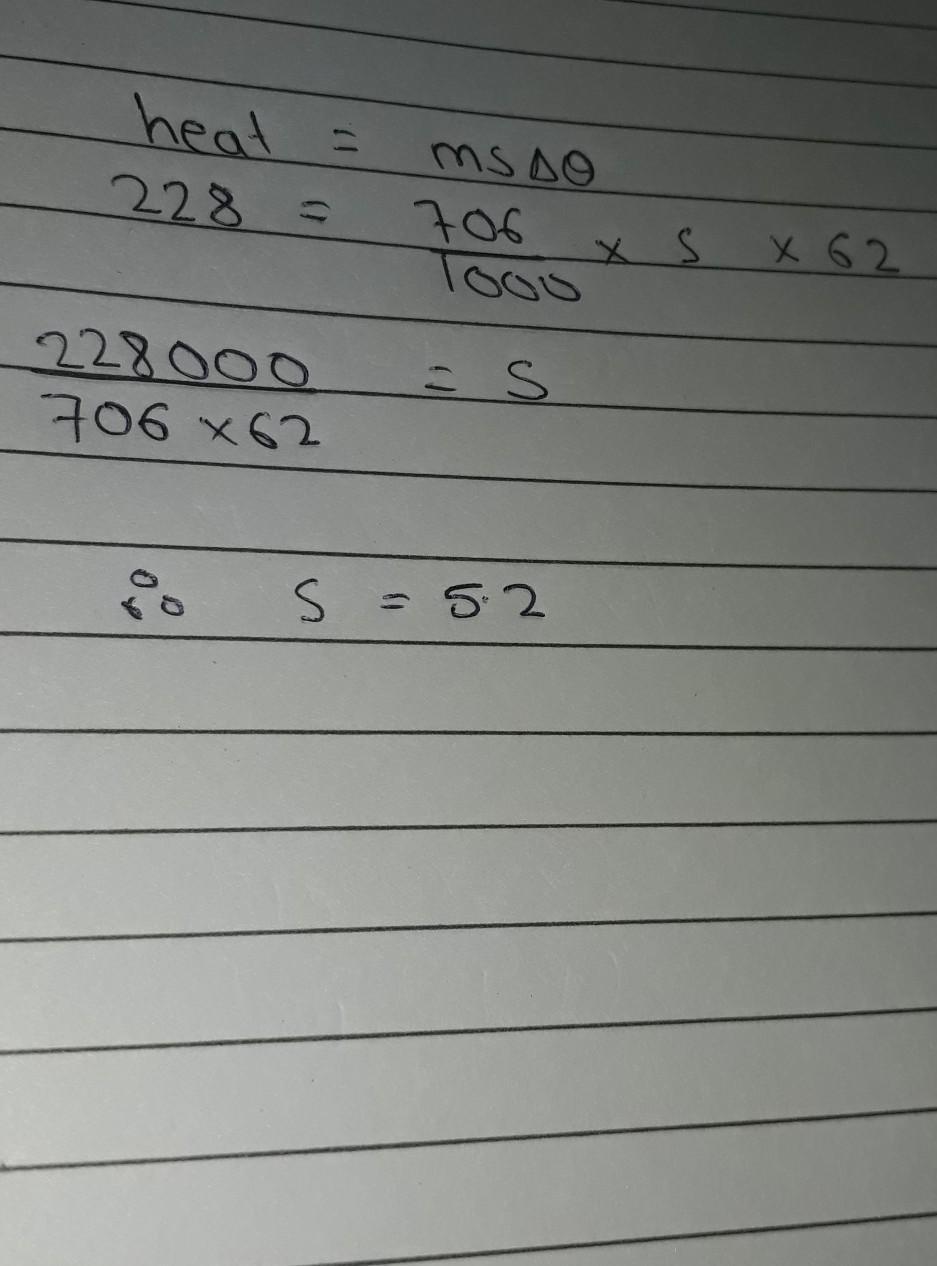 heat = msΔθ
228 = 706/1000 × s × 62
228000/706 × 62 = S
∴ S = 5.2